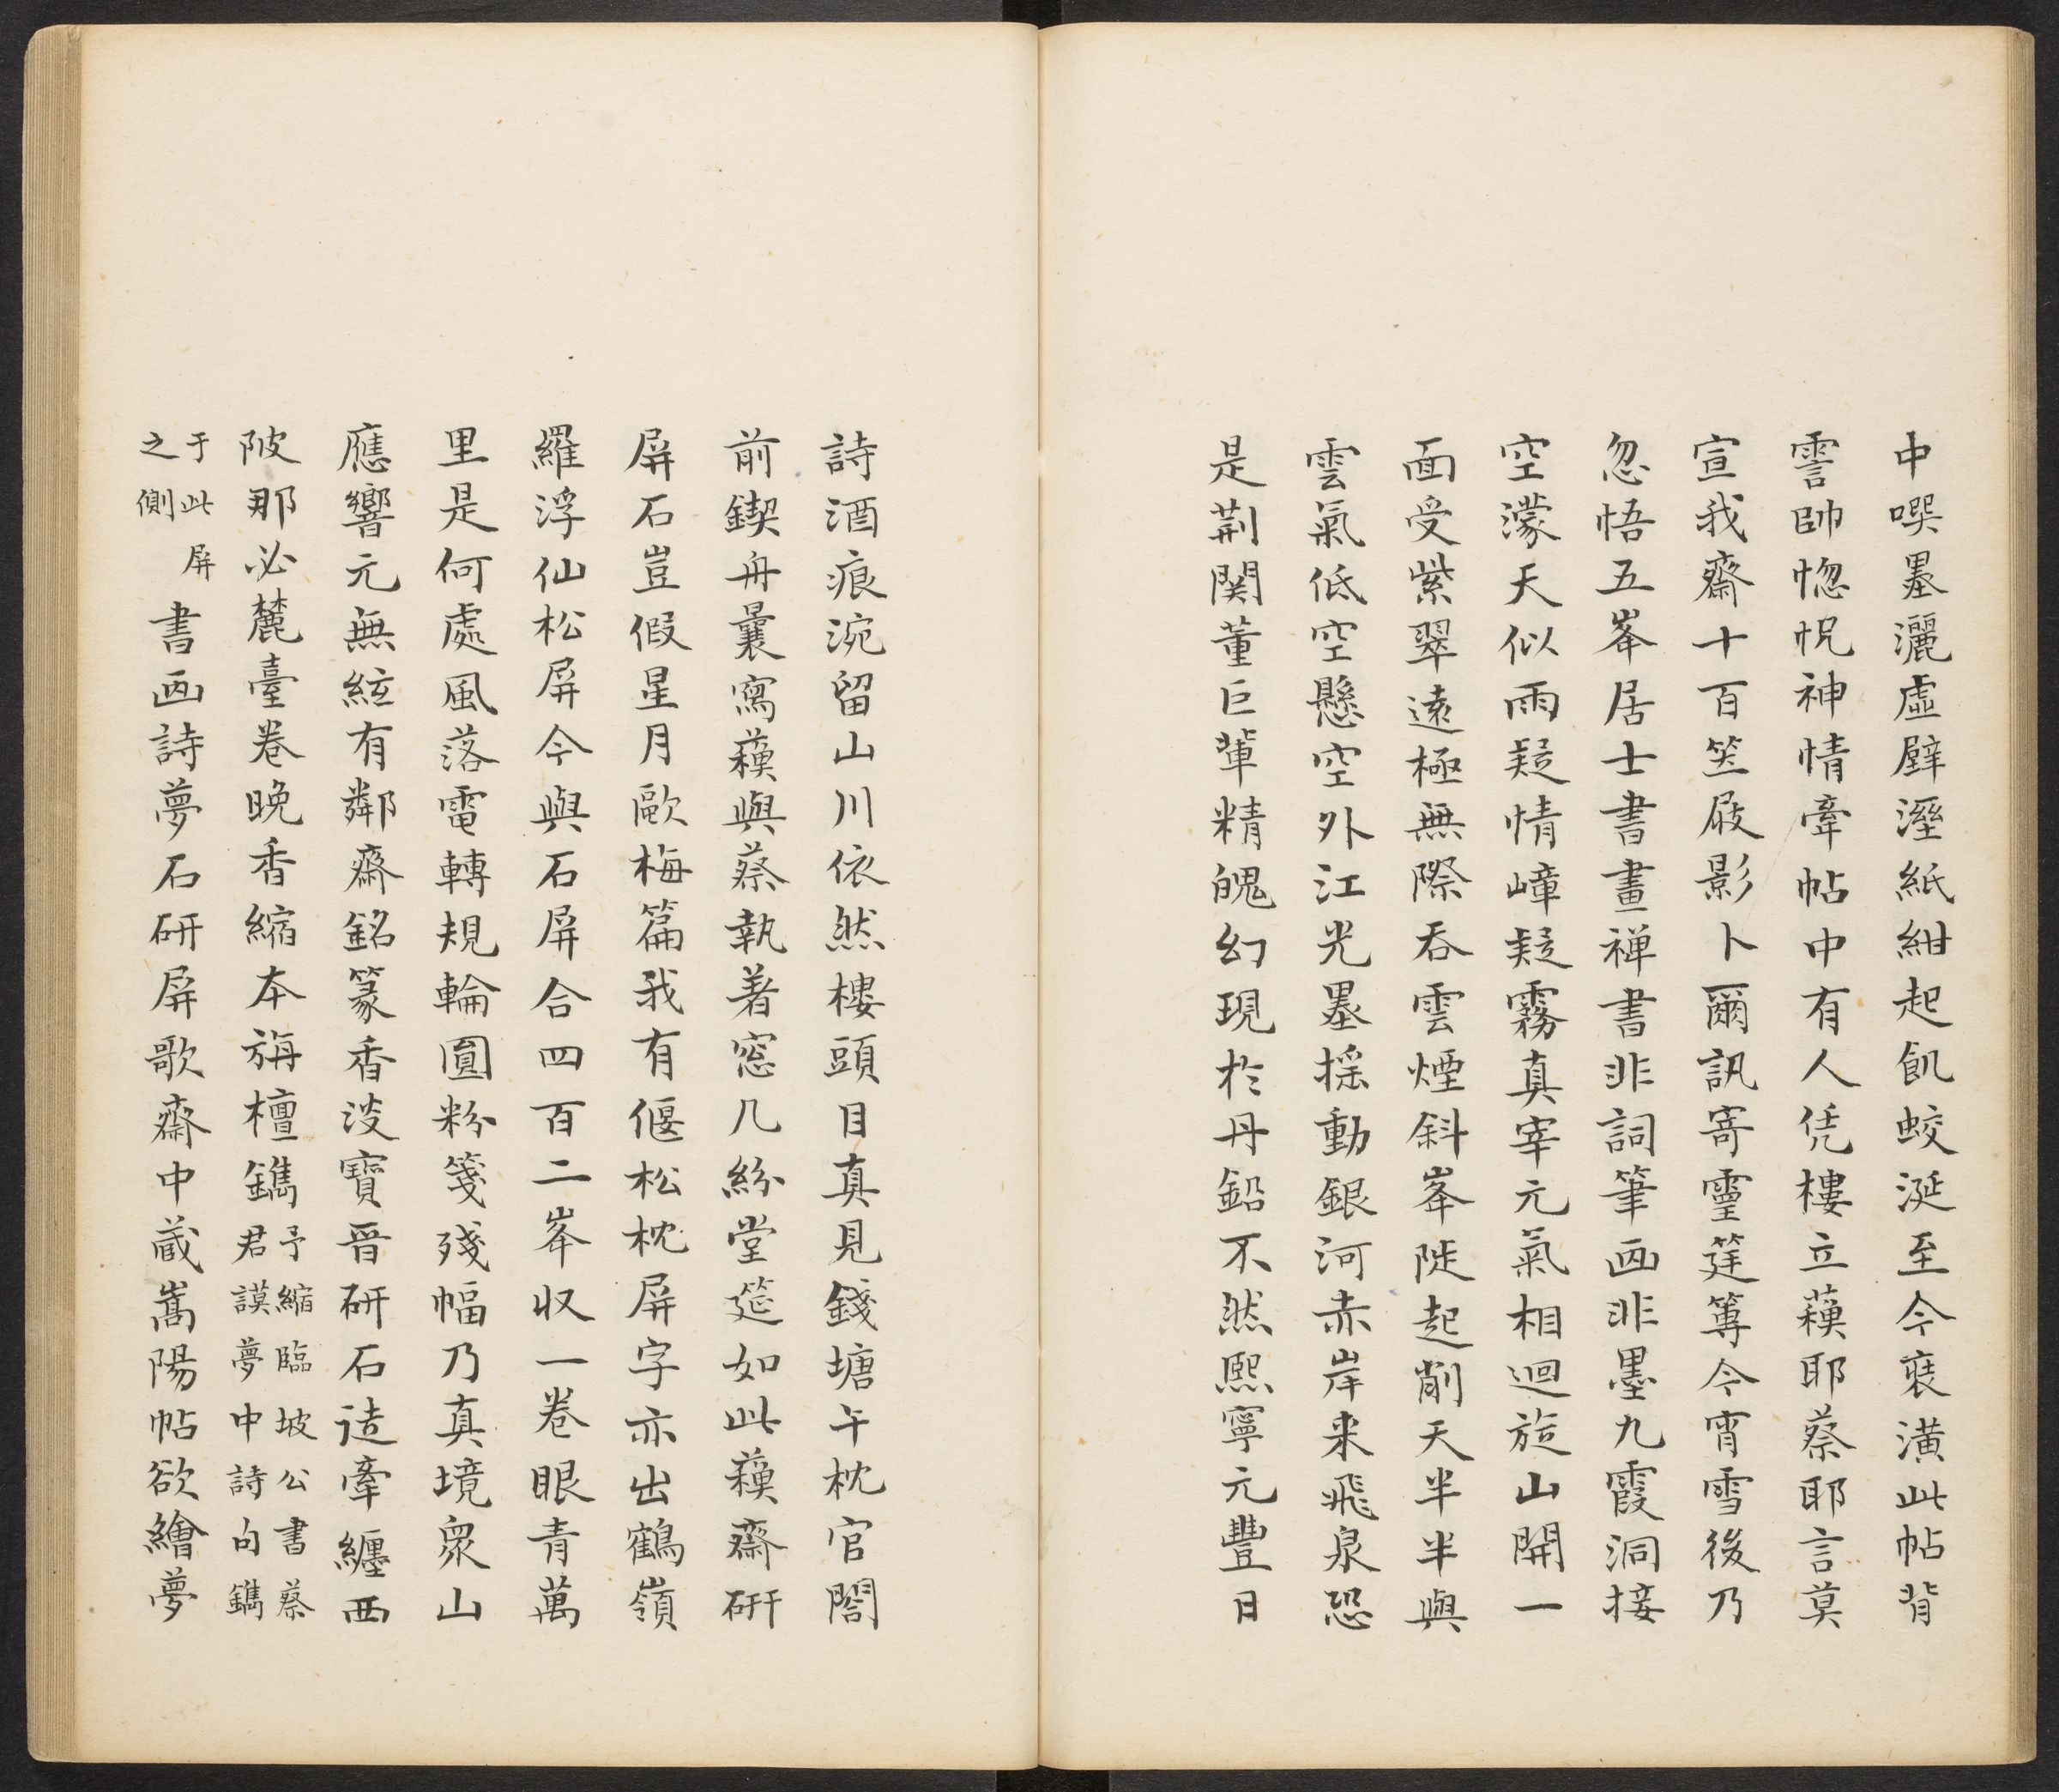 中噀墨灑虛壁溼紙紺起飢蛟涎至今裝潢此帖背
霅帥惚怳神情牽帖中有人凭樓立蘓耶蔡耶言莫
宣我齋十百笠屐影卜爾訊寄靈筳篿今宵雪後乃
忽悟五峯居士書畫禅書非詞筆画非墨九霞洞接
空濛天似雨疑情嶂疑霧真宰元氣相迴旋山開一
面受紫翠遠極無際吞雲煙斜峯陡起削天半半與
雲氣低空懸空外江光墨揺動銀河赤岸来飛泉恐
是荆関董巨輩精魄幻現扵丹鉛不然熙寧元豐日
詩酒痕涴留山川依然樓頭目真見錢塘午枕官閣
前鍥舟曩寫蘓與蔡執著窓几紛堂筵如此蘓齋研
屏石豈假星月歐梅篇我有偃松枕屏字亦出鶴嶺
羅浮仙松屏今與石屏合四百二峯収一卷眼青萬
里是何處風落電轉規輪圓粉箋殘幅乃真境衆山
應響元無絃有鄰齋銘篆香淡寶晉研石逰牽纏西
陂那必麓臺卷晚香縮本旃檀鐫予縮臨坡公書蔡君謨夢中詩句鐫
于此屏之側書画詩夢石研屏歌齋中蔵嵩陽帖欲繪夢